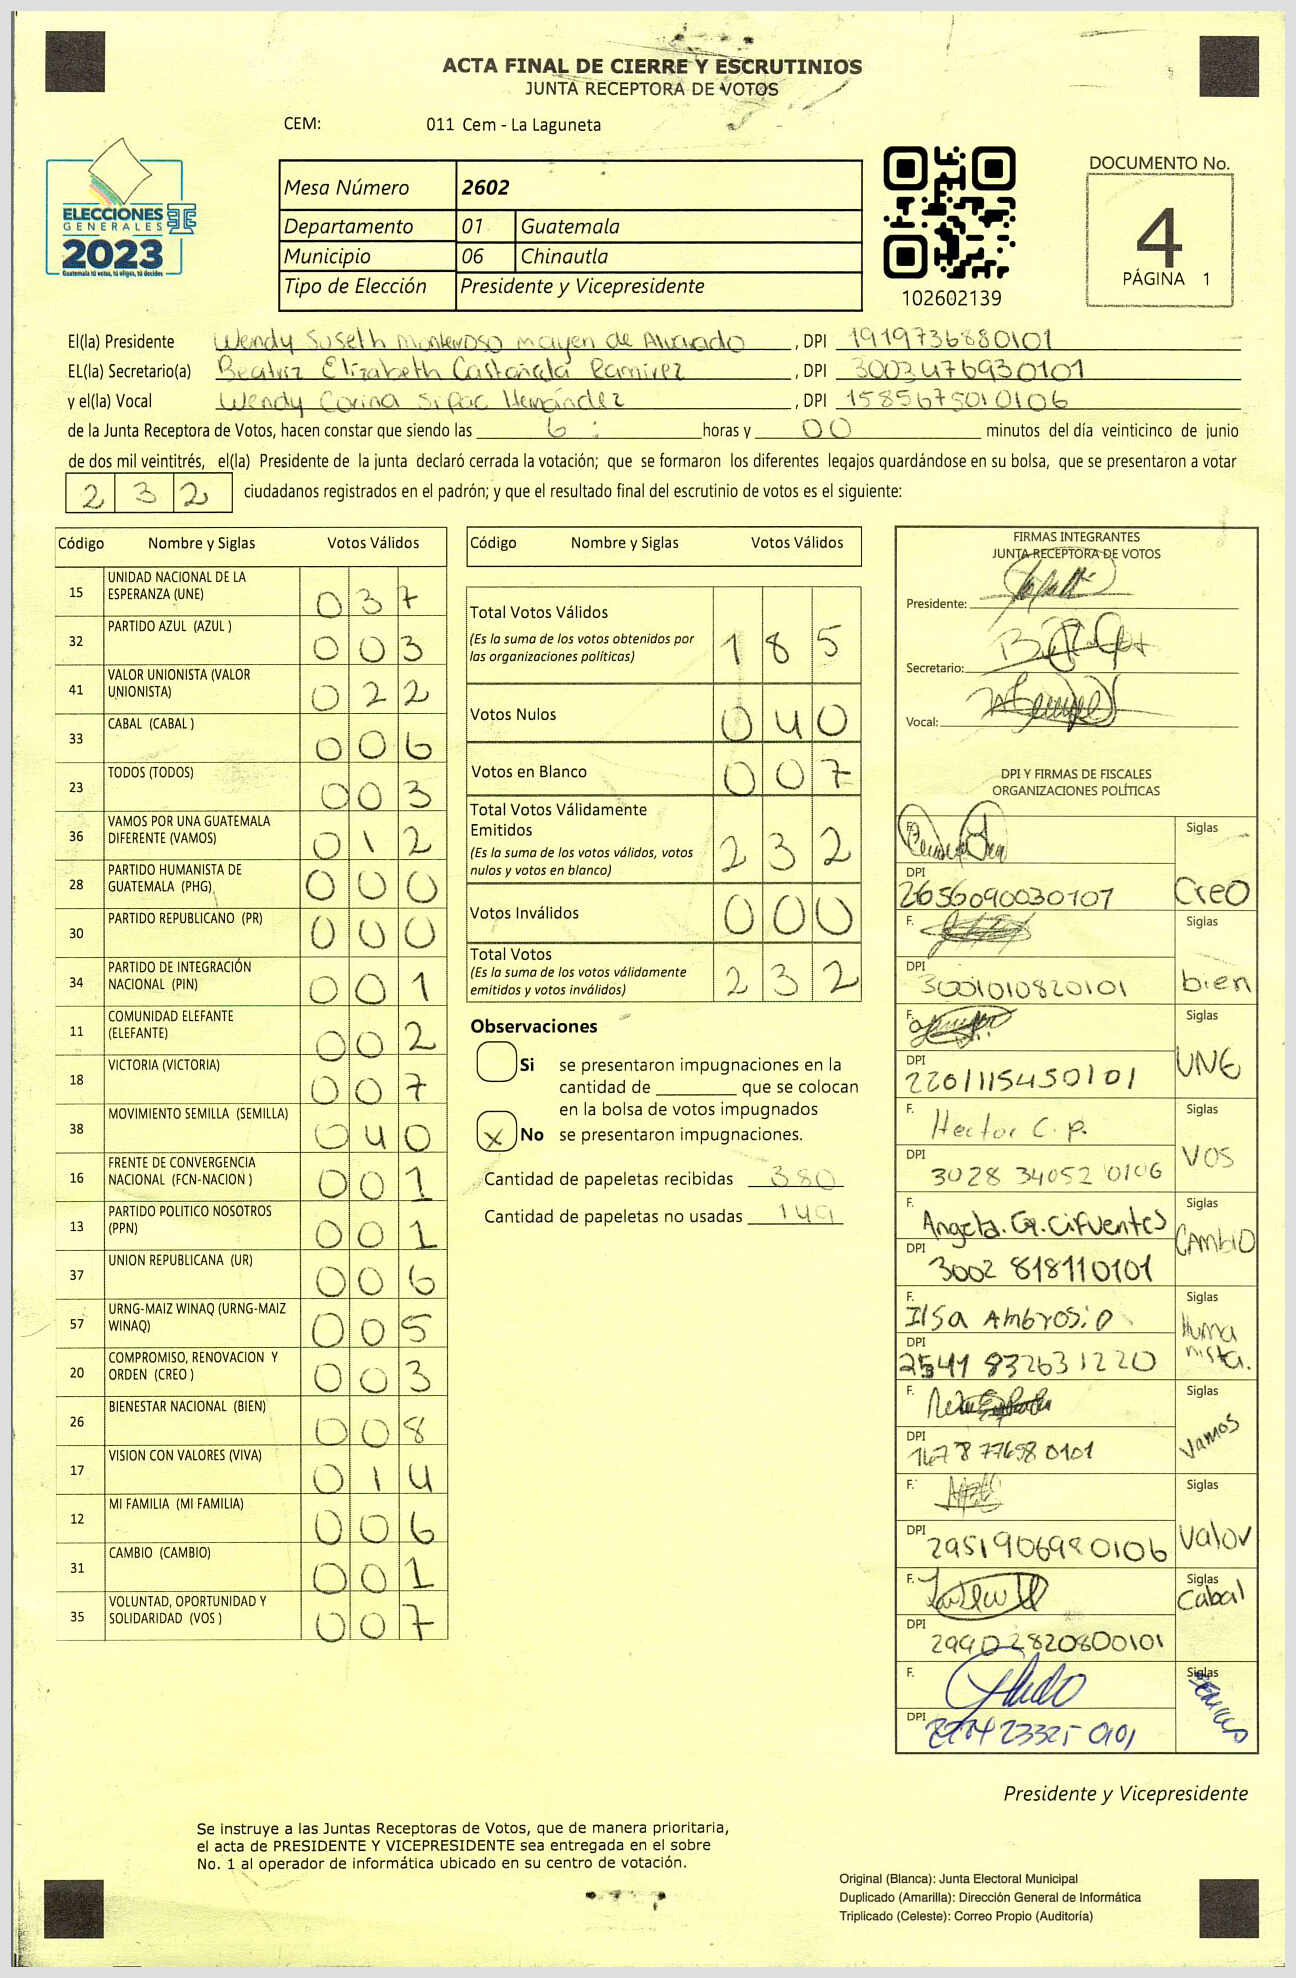 ACTA FINAL DE CIERRE Y ESCRUTINIOS
JUNTA RECEPTORA DE VOTOS
CEM: 011 Cem - La Laguneta
ELECCIONES
GENERALES
2023
Guatemala tú votas, tú eliges, tú decides
Mesa Número 2602
Departamento 01 Guatemala
Municipio 06 Chinautla
Tipo de Elección Presidente y Vicepresidente
102602139
DOCUMENTO No.
4
PÁGINA 1
El(la) Presidente Wendy Suseth Monterroso mayen de Alvarado , DPI 1919736880101
EL(la) Secretario(a) Beatriz Elizabeth Castañeda Ramirez , DPI 3003476930101
y el(la) Vocal Wendy Corina Sipac Hernández , DPI 1585675010106
de la Junta Receptora de Votos, hacen constar que siendo las 6: horas y 00 minutos del día veinticinco de junio
de dos mil veintitrés, el(la) Presidente de la junta declaró cerrada la votación; que se formaron los diferentes legajos guardándose en su bolsa, que se presentaron a votar
2 3 2 ciudadanos registrados en el padrón; y que el resultado final del escrutinio de votos es el siguiente:
Código Nombre y Siglas Votos Válidos
15 UNIDAD NACIONAL DE LA ESPERANZA (UNE) 0 3 7
32 PARTIDO AZUL (AZUL ) 0 0 3
41 VALOR UNIONISTA (VALOR UNIONISTA) 0 2 2
33 CABAL (CABAL ) 0 0 6
23 TODOS (TODOS) 0 0 3
36 VAMOS POR UNA GUATEMALA DIFERENTE (VAMOS) 0 1 2
28 PARTIDO HUMANISTA DE GUATEMALA (PHG) 0 0 0
30 PARTIDO REPUBLICANO (PR) 0 0 0
34 PARTIDO DE INTEGRACIÓN NACIONAL (PIN) 0 0 1
11 COMUNIDAD ELEFANTE (ELEFANTE) 0 0 2
18 VICTORIA (VICTORIA) 0 0 7
38 MOVIMIENTO SEMILLA (SEMILLA) 0 4 0
16 FRENTE DE CONVERGENCIA NACIONAL (FCN-NACION ) 0 0 1
13 PARTIDO POLITICO NOSOTROS (PPN) 0 0 1
37 UNION REPUBLICANA (UR) 0 0 6
57 URNG-MAIZ WINAQ (URNG-MAIZ WINAQ) 0 0 5
20 COMPROMISO, RENOVACION Y ORDEN (CREO ) 0 0 3
26 BIENESTAR NACIONAL (BIEN) 0 0 8
17 VISION CON VALORES (VIVA) 0 1 4
12 MI FAMILIA (MI FAMILIA) 0 0 6
31 CAMBIO (CAMBIO) 0 0 1
35 VOLUNTAD, OPORTUNIDAD Y SOLIDARIDAD (VOS ) 0 0 7
Código Nombre y Siglas Votos Válidos
Total Votos Válidos 1 8 5
(Es la suma de los votos obtenidos por
las organizaciones políticas)
Votos Nulos 0 4 0
Votos en Blanco 0 0 7
Total Votos Válidamente
Emitidos 2 3 2
(Es la suma de los votos válidos, votos
nulos y votos en blanco)
Votos Inválidos 0 0 0
Total Votos 2 3 2
(Es la suma de los votos válidamente
emitidos y votos inválidos)
Observaciones
Si se presentaron impugnaciones en la
cantidad de ________ que se colocan
en la bolsa de votos impugnados
x No se presentaron impugnaciones.
Cantidad de papeletas recibidas 380
Cantidad de papeletas no usadas 149
FIRMAS INTEGRANTES
JUNTA RECEPTORA DE VOTOS
Presidente:
Secretario:
Vocal:
DPI Y FIRMAS DE FISCALES
ORGANIZACIONES POLÍTICAS
F. Siglas
DPI 2656090030107 Creo
F. Siglas
DPI 3001010820101 bien
F. Siglas
DPI 2201115450101 UNE
F. Hector C. P. Siglas
DPI 3028 34052 0106 VOS
F. Angela. G. Cifuentes Siglas
DPI 3002 818110101 CAMBIO
F. Ilsa Ambrosio Siglas
DPI 2541 832631220 Humanista.
F. Siglas
DPI 1678 77698 0101 Vamos
F. Siglas
DPI 2951906980106 Valor
F. Siglas
DPI 2990282080101 Cabal
F. Siglas
DPI
Presidente y Vicepresidente
Se instruye a las Juntas Receptoras de Votos, que de manera prioritaria,
el acta de PRESIDENTE Y VICEPRESIDENTE sea entregada en el sobre
No. 1 al operador de informática ubicado en su centro de votación.
Original (Blanca): Junta Electoral Municipal
Duplicado (Amarilla): Dirección General de Informática
Triplicado (Celeste): Correo Propio (Auditoría)